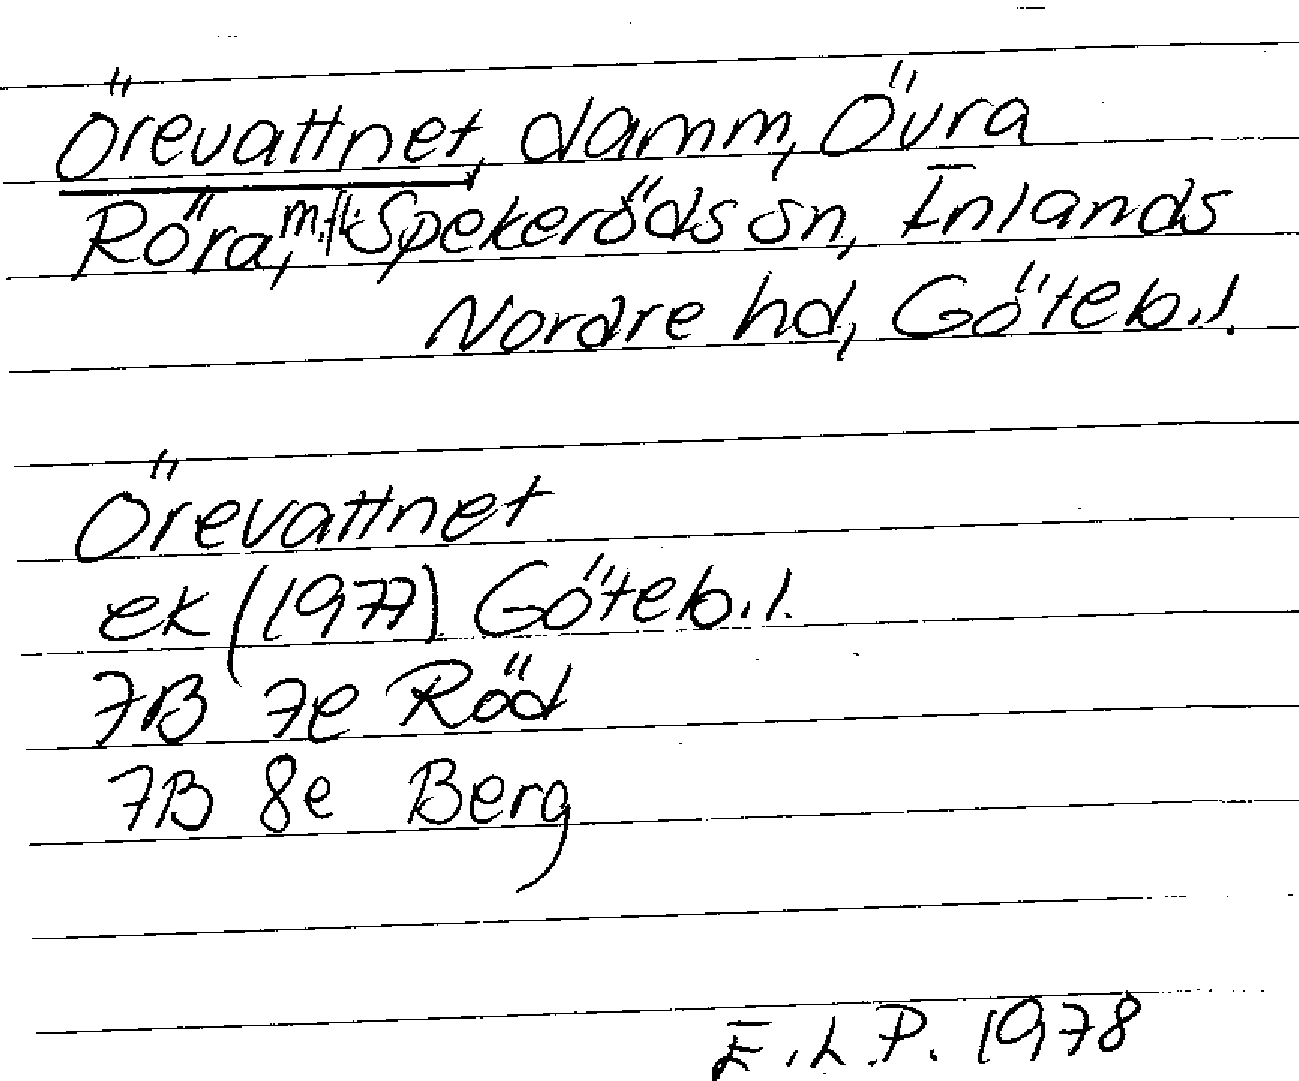 Örevattnet, damm, Övra
Röra, m.fl. Spekeröds sn, Inlands
Nordre hd, Göteb.l.
Örevattnet
ek (1977) Göteb.l.
7B 7e Röd
7B 8e Berg
E.L.P. 1978